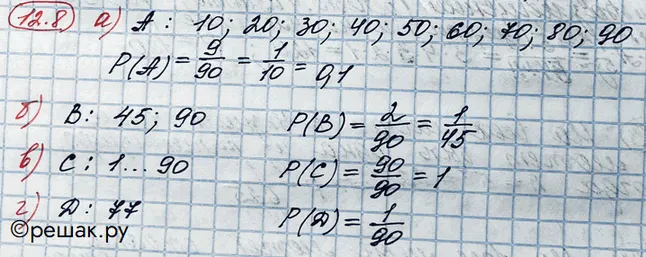 12.8) а) A: 10; 20; 30; 40; 50; 60; 70; 80; 90
P(A) = 9/90 = 1/10 = 0,1
б) B: 45; 90 P(B) = 2/90 = 1/45
в) C: 1...90 P(C) = 90/90 = 1
г) Д: 77 P(Д) = 1/90
©решак.ру